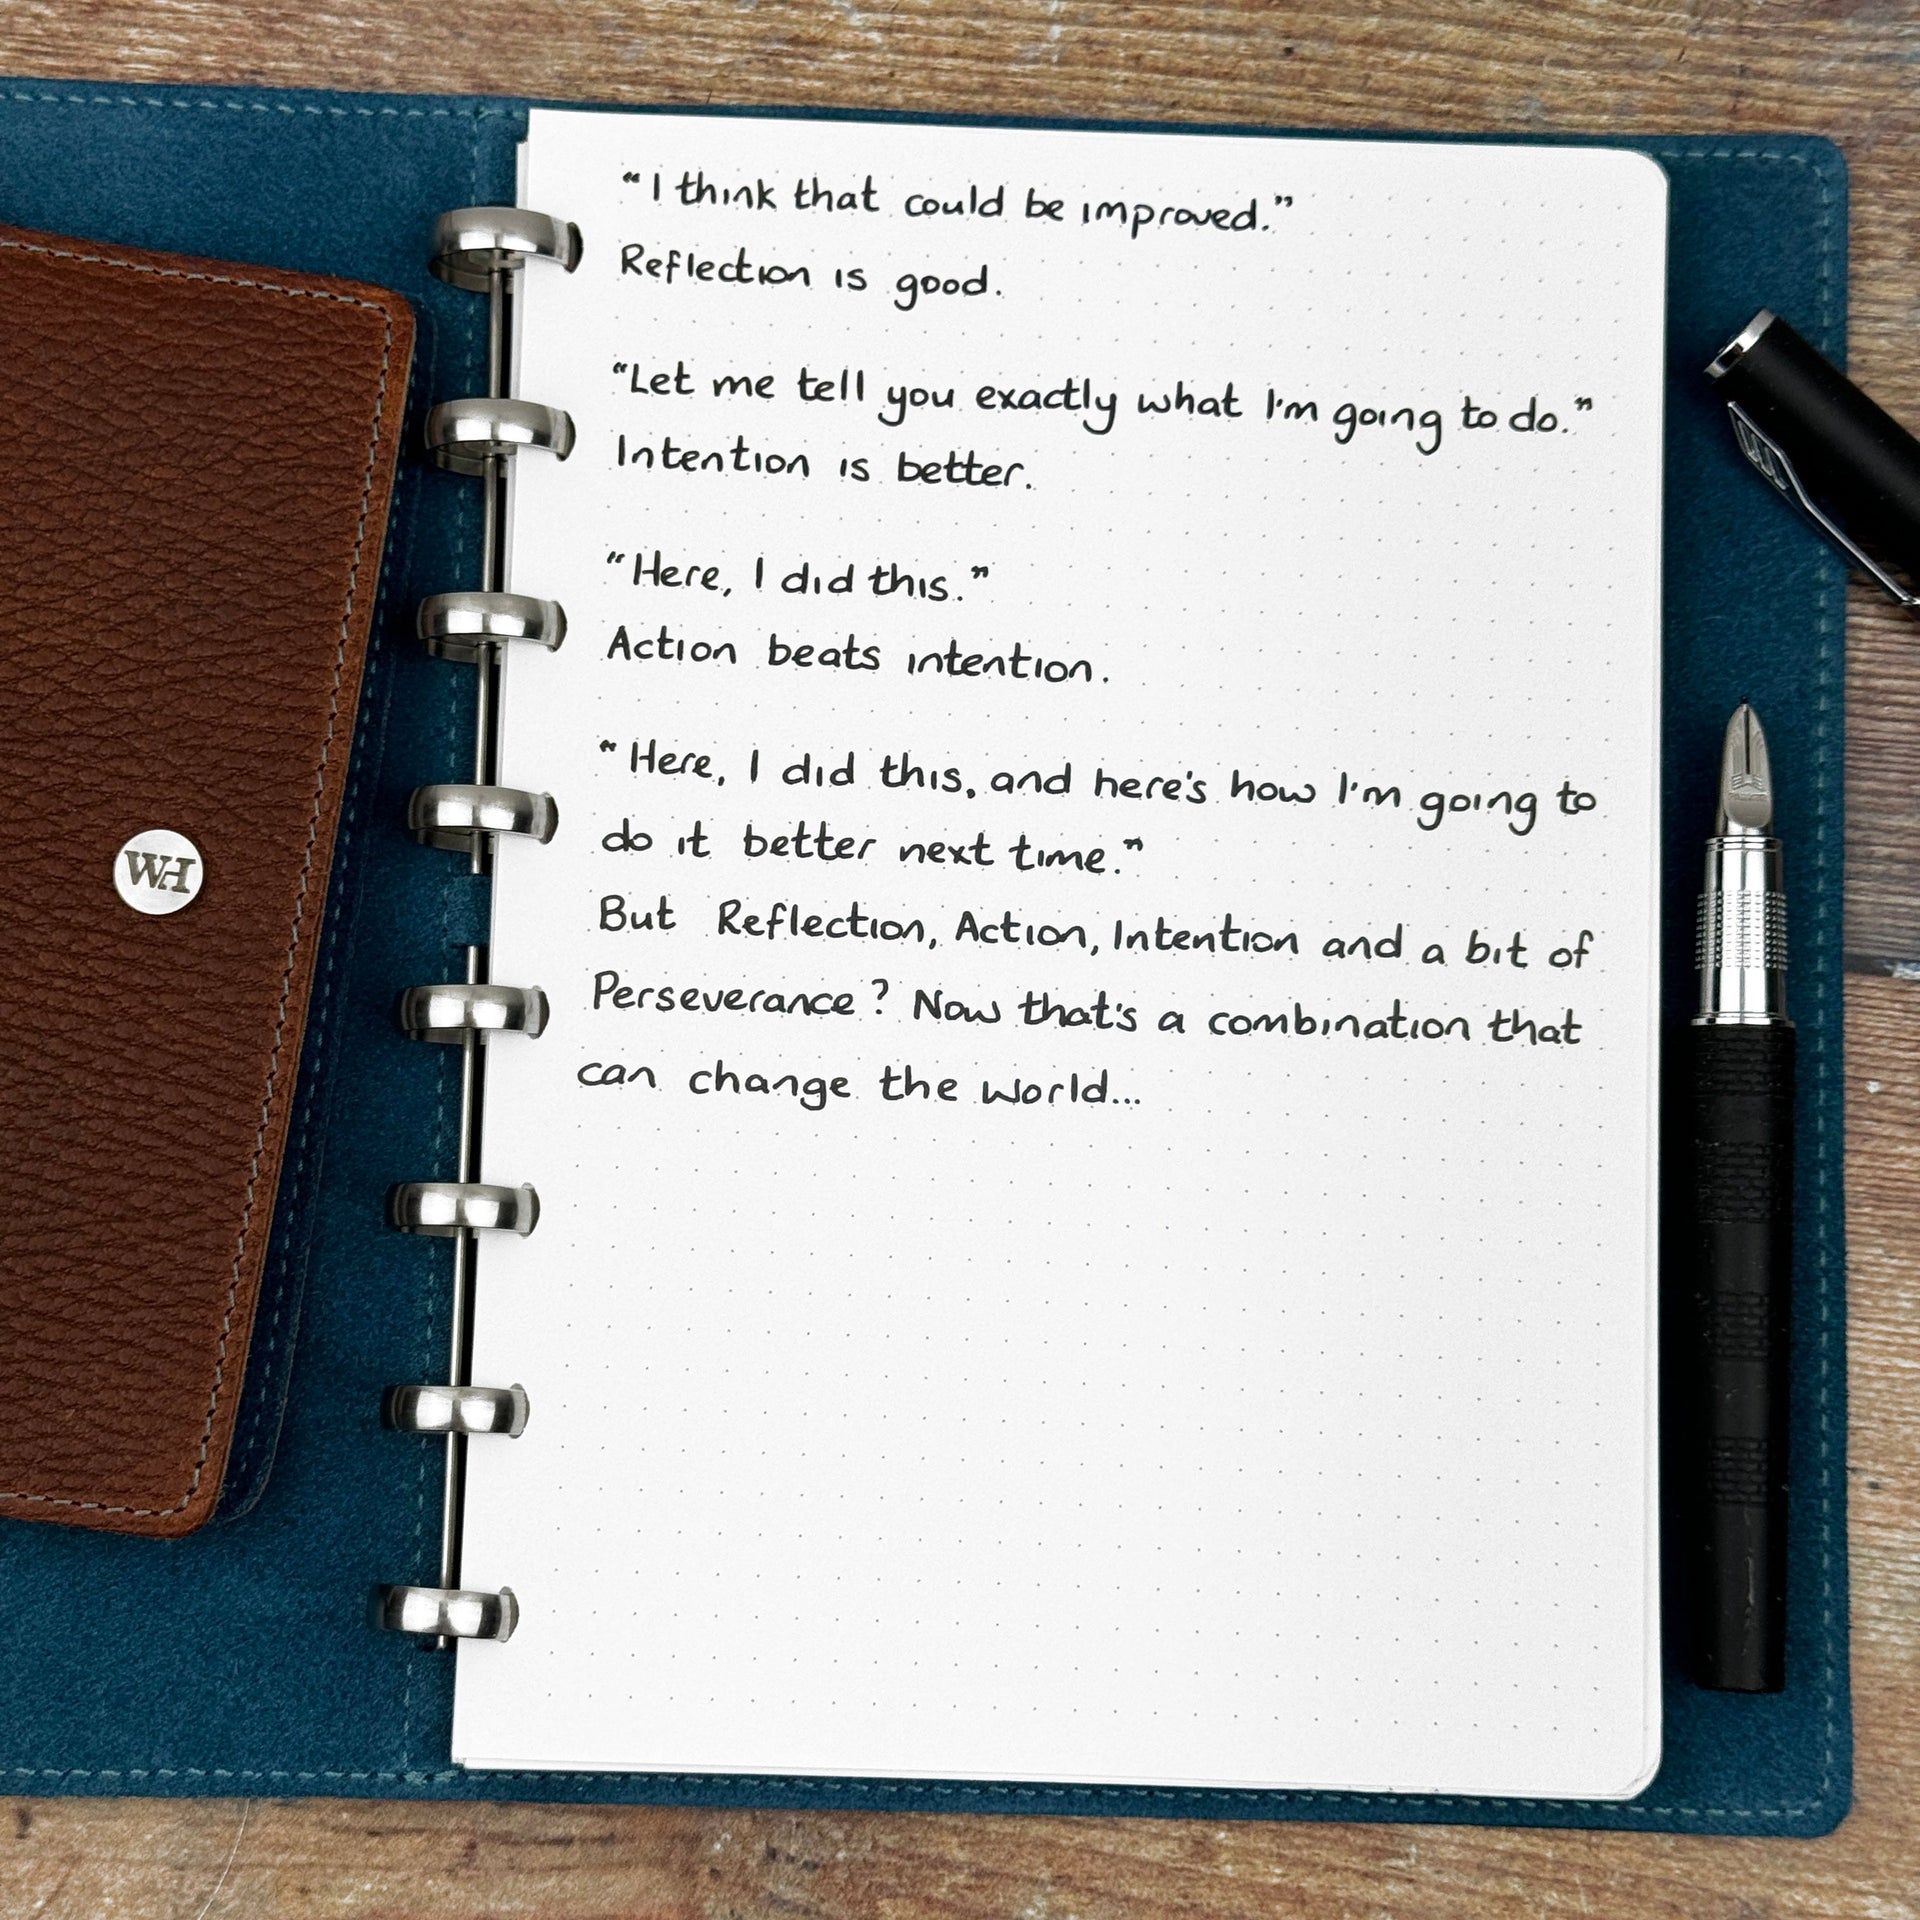 WH
“I think that could be improved.”
Reflection is good.
“Let me tell you exactly what I'm going to do.”
Intention is better.
“Here, I did this.”
Action beats intention.
“Here, I did this, and here's how I'm going to
do it better next time.”
But Reflection, Action, Intention and a bit of
Perseverance? Now that's a combination that
can change the world...